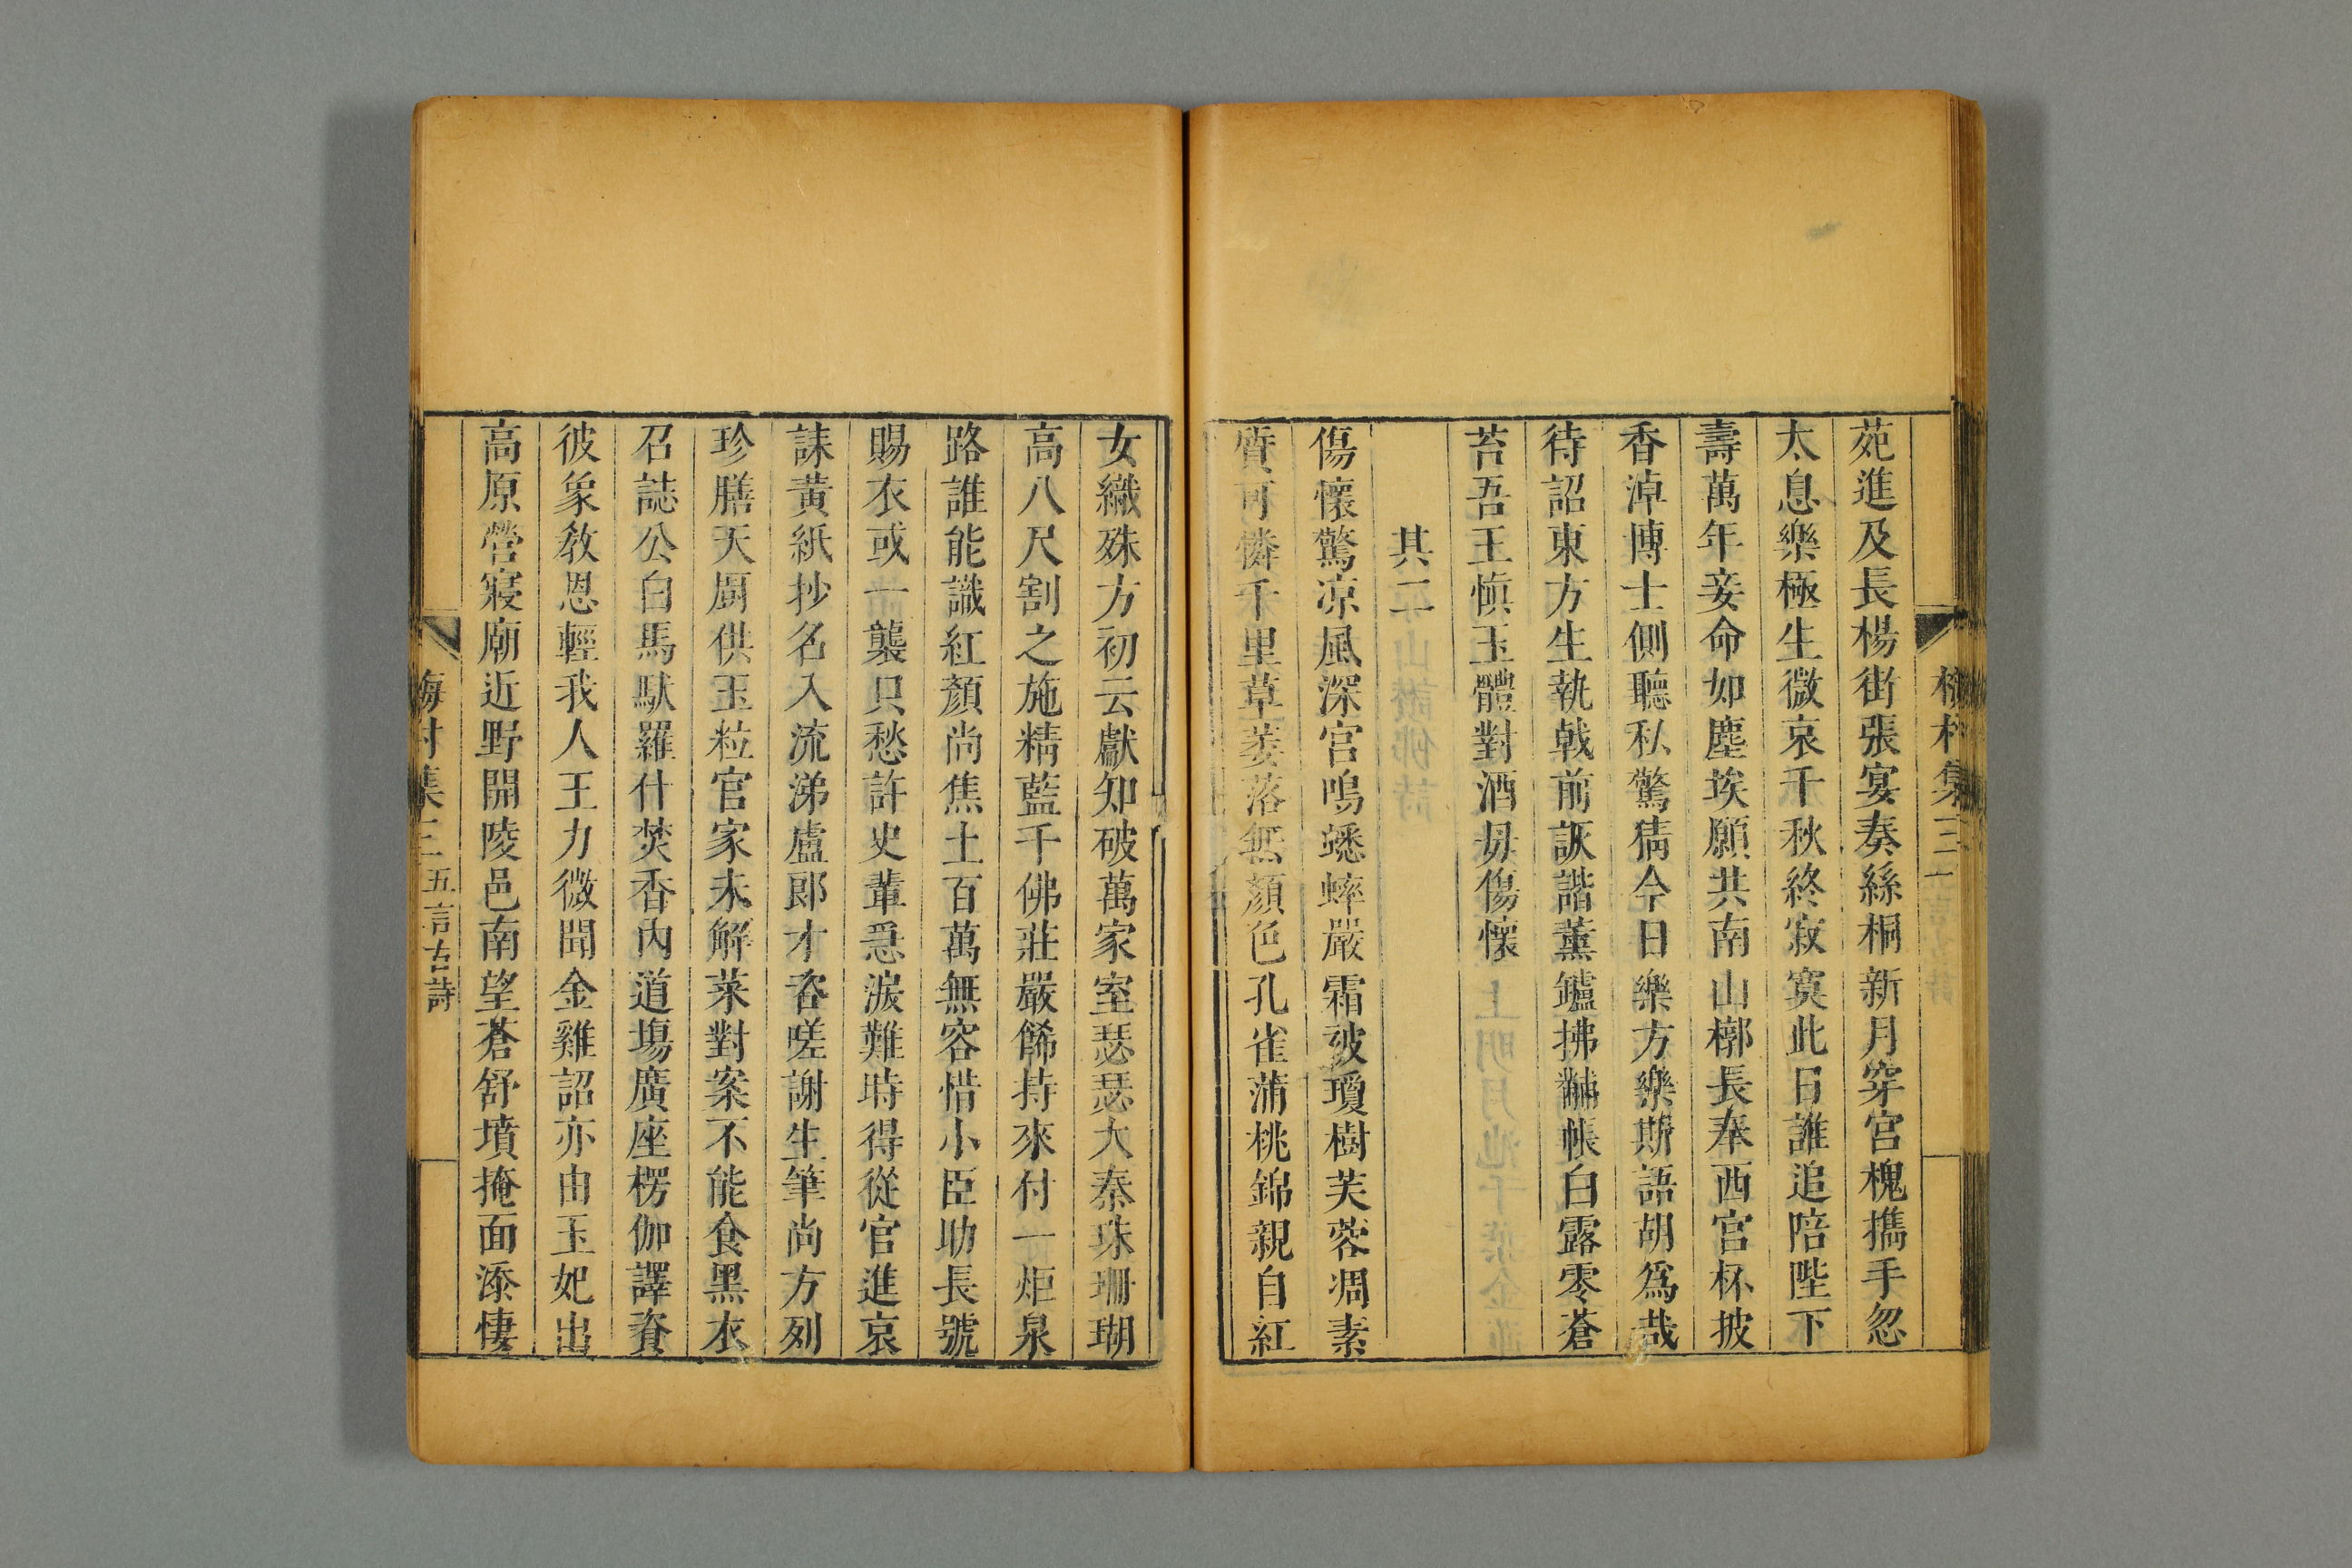 苑進及長楊街張宴奏絲桐新月穿宮槐攜手忽
太息樂極生微哀千秋終寂寞此日誰追陪陛下
壽萬年妾命如塵埃願共南山槨長奉西宮杯披
香淖博士側聽私驚猜今日樂方樂斯語胡爲哉
待詔東方生執戟前詼諧薰鑪拂黼帳白露零蒼
苔吾王慎玉體對酒毋傷懷
其二
傷懷驚凉風深宮鳴蟋蟀嚴霜被瓊樹芙蓉凋素
質可憐千里草萎落無顏色孔雀蒲桃錦親自紅
女織殊方初云獻知破萬家室瑟瑟大秦珠珊瑚
高八尺割之施精藍千佛莊嚴餙持來付一炬泉
路誰能識紅顏尚焦土百萬無容惜小臣助長號
賜衣或一襲只愁許史輩急淚難時得從官進哀
誄黃紙抄名入流涕盧郎才咨嗟謝生筆尚方列
珍膳天厨供玉粒官家未解菜對案不能食黑衣
召誌公白馬馱羅什焚香內道場廣座楞伽譯資
彼象教恩輕我人王力微聞金雞詔亦由玉妃出
高原營寢廟近野開陵邑南望蒼舒墳掩面添悽
梅村集三 五言古詩